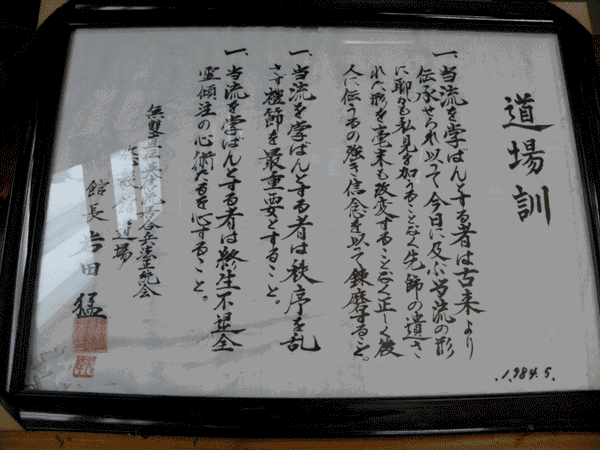 道場訓
一、当流を学ばんとする者は古来より
伝承せられ以て今日に及ぶ当流の形
に聊かも私見を加うることなく先師の遺さ
れた形を毫末も改変することなく正しく後
人に伝うるの強き信念を以て錬磨すること。
一、当流を学ばんとする者は秩序を乱
さず礼節を最重要とすること。
一、当流を学ばんとする者は終生不退全
霊傾注の心術たるを心すること。
無雙直伝英信流居合兵法正統会
道場
館長 岩田 猛
.1984.5.